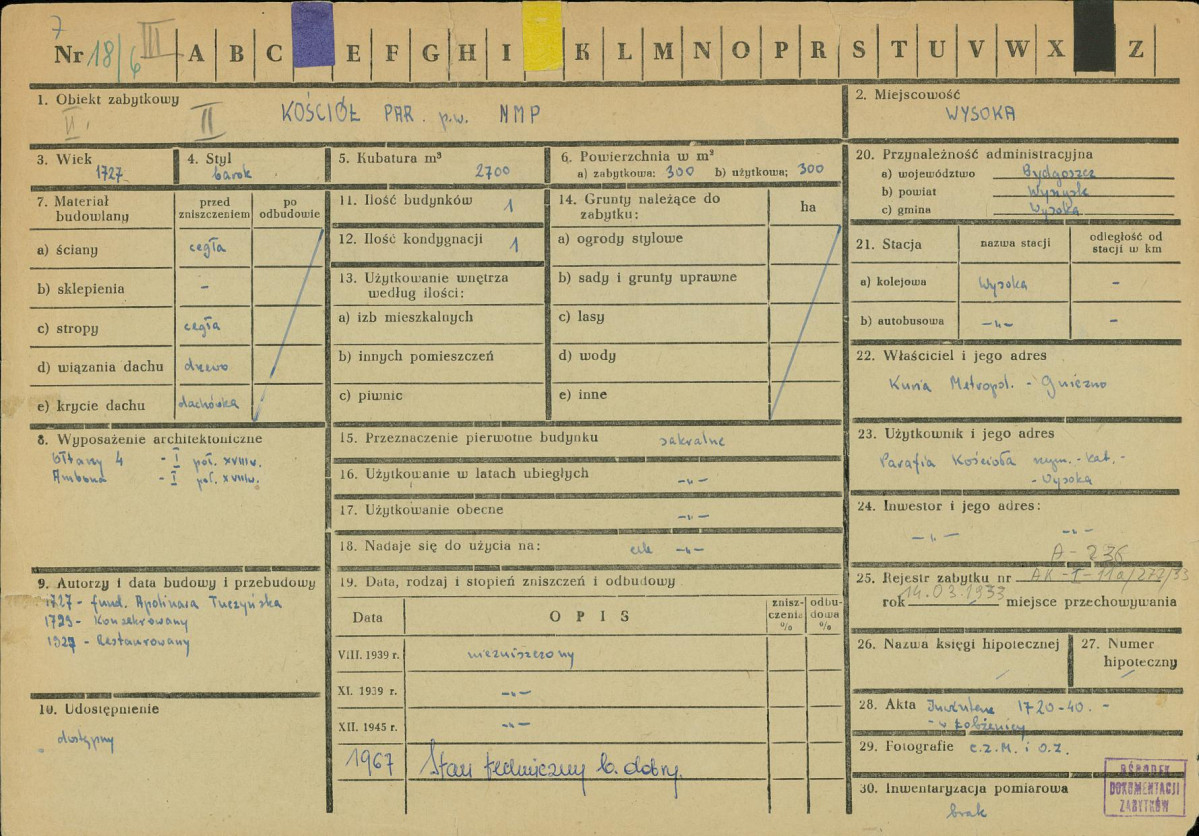 7
Nr 18/6 III A B C E F G H I K L M N O P R S T U V W X Z
1. Obiekt zabytkowy
II. II KOŚCIÓŁ PAR. p.w. NMP
2. Miejscowość
WYSOKA
3. Wiek
1727
4. Styl
barok
5. Kubatura m³
2700
6. Powierzchnia w m²
a) zabytkowa: 300 b) użytkowa; 300
7. Materiał budowlany
przed zniszczeniem
po odbudowie
a) ściany cegła
b) sklepienia -
c) stropy cegła
d) wiązania dachu drzewo
e) krycie dachu dachówka
8. Wyposażenie architektoniczne
Ołtarzy 4 - I poł. XVIII w.
Ambona - I poł. XVIII w.
9. Autorzy i data budowy i przebudowy
1727 - fund. Apolinara Tuczyńska
1729 - Konsekrowany
1927 - Restaurowany
10. Udostępnienie
dostępny
11. Ilość budynków 1
12. Ilość kondygnacji 1
13. Użytkowanie wnętrza
według ilości:
a) izb mieszkalnych
b) innych pomieszczeń
c) piwnic
14. Grunty należące do
zabytku:
ha
a) ogrody stylowe
b) sady i grunty uprawne
c) lasy
d) wody
e) inne
15. Przeznaczenie pierwotne budynku sakralne
16. Użytkowanie w latach ubiegłych -"-
17. Użytkowanie obecne -"-
18. Nadaje się do użycia na: cele -"-
19. Data, rodzaj i stopień zniszczeń i odbudowy
Data OPIS znisz-czenia % odbu-dowa %
VIII. 1939 r. niezniszczony
XI. 1939 r. -"-
XII. 1945 r. -"-
1967 Stan techniczny b. dobry.
20. Przynależność administracyjna
a) województwo Bydgoszcz
b) powiat Wyrzysk
c) gmina Wysoka
21. Stacja nazwa stacji odległość od stacji w km
a) kolejowa Wysoka -
b) autobusowa -"- -
22. Właściciel i jego adres
Kuria Metropol. - Gniezno
23. Użytkownik i jego adres
Parafia Kościoła rzym. - kat. -
- Wysoka
24. Inwestor i jego adres:
-"- -"-
A-236
25. Rejestr zabytku nr AK-I-11a/272/33
rok 14.03.1933 miejsce przechowywania
26. Nazwa księgi hipotecznej
27. Numer
hipoteczny
28. Akta Inwentarz 1720-40. -
- w Łobżenicy
29. Fotografie C.Z.M. i O.Z.
30. Inwentaryzacja pomiarowa
brak
OŚRODEK
DOKUMENTACJI
ZABYTKÓW